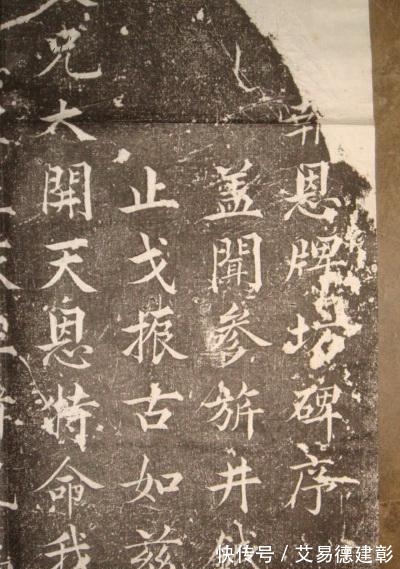 恩牌坊碑序
盖聞参旂井
止戈振古如兹
兄大開天恩特命我
快传号/艾易德建彰